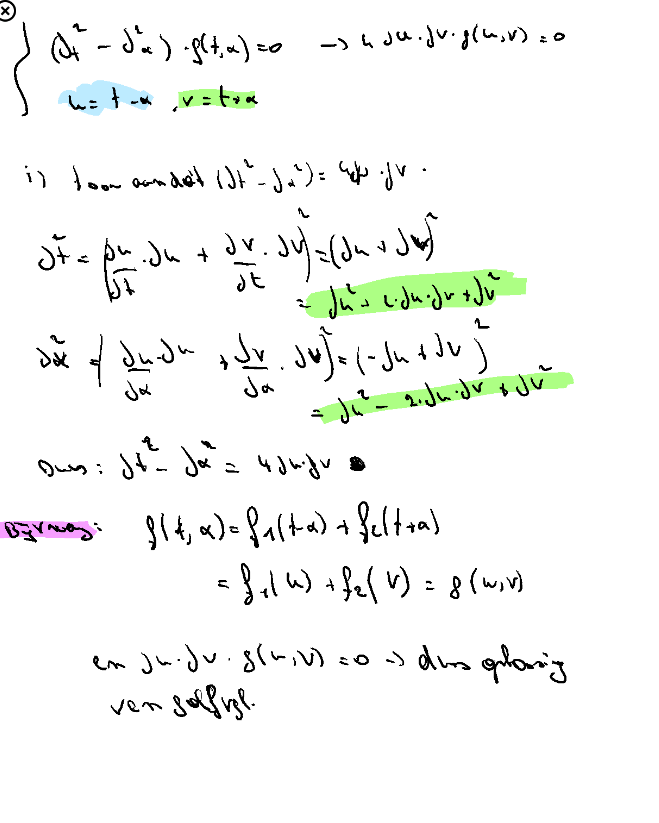 (∂t² - ∂x²) · f(t,x) = 0 → 4 ∂u · ∂v · g(u,v) = 0
u = t - x , v = t + x
i) toon aan dat (∂t² - ∂x²) = 4∂u · ∂v .
∂t² = (∂u/∂t · ∂u + ∂v/∂t · ∂v)² = (∂u + ∂v)²
= ∂u² + 2·∂u·∂v + ∂v²
∂x² = (∂u/∂x · ∂u + ∂v/∂x · ∂v)² = (-∂u + ∂v)²
= ∂u² - 2·∂u·∂v + ∂v²
Dus : ∂t² - ∂x² = 4∂u·∂v
Bijvraag: f(t,x) = f1(t-x) + f2(t+x)
= f1(u) + f2(v) = g(u,v)
en ∂u · ∂v · g(u,v) = 0 → dus oplossing
van golfvgl.